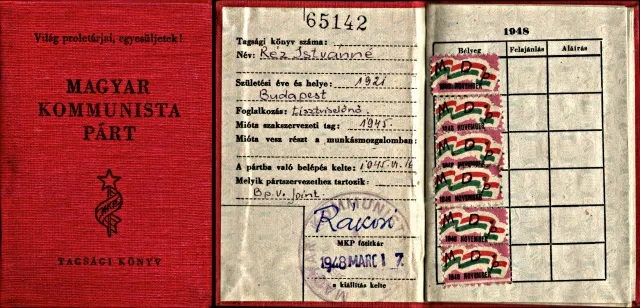 Világ proletárjai, egyesüljetek!
MAGYAR
KOMMUNISTA
PÁRT
TAGSÁGI KÖNYV
65142
Tagsági könyv száma:
Név: Réz Istvánné
Születési éve és helye: 1921
Budapest
Foglalkozás: tisztviselőnő
Mióta szakszervezeti tag: 1945.
Mióta vesz részt a munkásmozgalomban:
A pártba való belépés kelte: 1945. VI. 16
Melyik pártszervezethez tartozik:
B.p.v. Joint.
Rákosi
MKP főtitkár
1948 MARC 17
a kiállítás kelte
1948
Bélyeg Felajánlás Aláírás
M D P
1948 NOVEMBER
M D P
1948 NOVEMBER
M D P
1948 NOVEMBER
M D P
1948 NOVEMBER
M D P
1948 NOVEMBER
M D P
1948 NOVEMBER